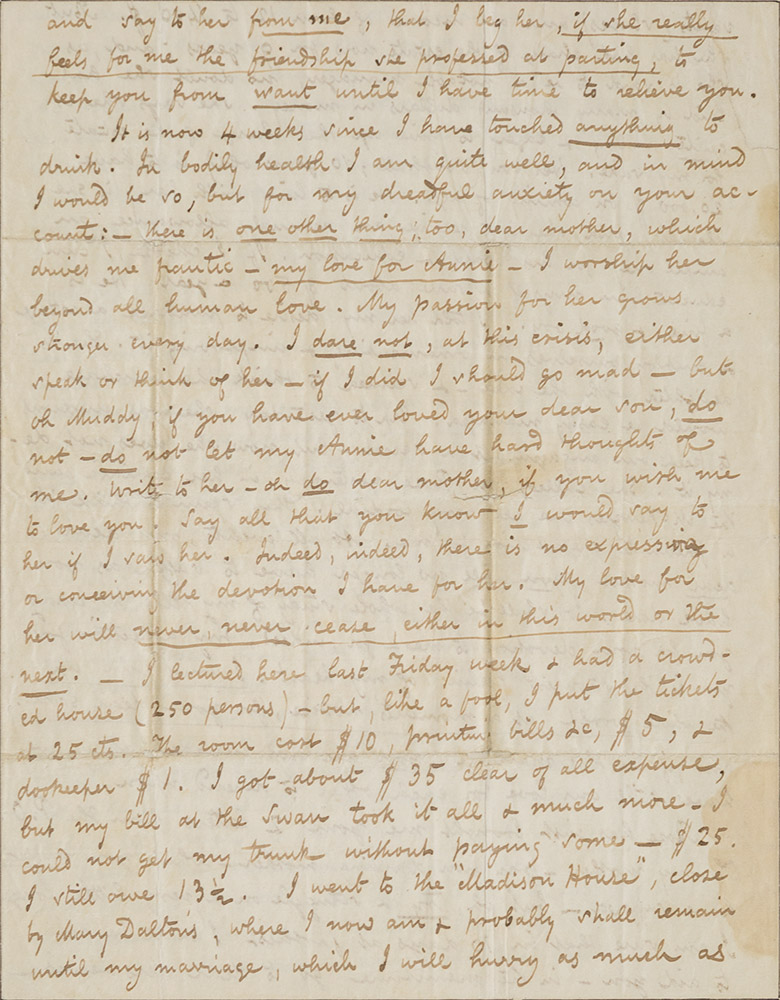 and say to her from me, that I beg her, if she really
feels for me the friendship she professed at parting, to
keep you from want until I have time to relieve you.
It is now 4 weeks since I have touched anything to
drink. In bodily health I am quite well, and in mind
I would be so, but for my dreadful anxiety on your ac-
count: — there is one other thing, too, dear mother, which
drives me frantic — my love for Annie — I worship her
beyond all human love. My passion for her grows
stronger every day. I dare not, at this crisis, either
speak or think of her — if I did I should go mad — but
oh Muddy, if you have ever loved your dear son, do
not — do not let my Annie have hard thoughts of
me. Write to her — oh do dear mother, if you wish me
to love you. Say all that you know I would say to
her if I saw her. Indeed, indeed, there is no expressing
or conceiving the devotion I have for her. My love for
her will never, never cease, either in this world or the
next. — I lectured here last Friday week & had a crowd-
ed house (250 persons) — but, like a fool, I put the tickets
at 25 cts. The room cost $10, printin bills &c, $5, &
doorkeeper $1. I got about $35 clear of all expense,
but my bill at the Swan took it all & much more — I
could not get my trunk without paying some — $25.
I still owe 13½. I went to the "Madison House", close
by Mary Dalton's, where I now am & probably shall remain
until my marriage, which I will hurry as much as